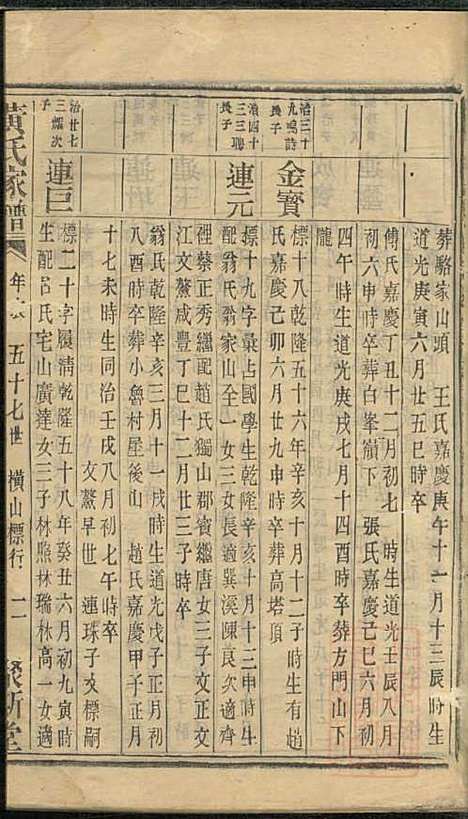 葬駱家山頭　王氏嘉慶庚午十一月十三辰時生
道光庚寅六月廿五巳時卒
傅氏嘉慶丁丑十二月初七　時生道光壬辰八月
初六申時卒葬白峯嶺下　張氏嘉慶己巳六月初
四午時生道光庚戌七月十四酉時卒葬方門山下
隴
治三十
九鳴詩
長子
金寳
標十八乾隆五十六年辛亥十月十二子時生有趙
氏嘉慶己卯六月廿九申時卒葬高塔頂
濵四十
三三聘
長子
連元
標十九字彙占國學生乾隆辛亥十月十三申時生
配嘉氏翁家山全一女三女長適巽溪陳良次適齊
徑蔡正秀繼配趙氏獨山郡賓繼唐女三子文正文
江文鰲咸豐丁巳十二月廿三子時卒
翁氏乾隆辛亥三月十一戌時生道光戊子正月初
八酉時卒葬小魯村屋後山　趙氏嘉慶甲子正月
十七未時生同治壬戌八月初七午時卒
文鰲早世　連珠子文標嗣
治廿七
三耀次
子
連巨
標二十字履淸乾隆五十八年癸丑六月初九寅時
生配呂氏宅山廣達女三子林照林瑞林高一女適
黄氏家譜
年
五十七世　橫山標行　二
敘新堂